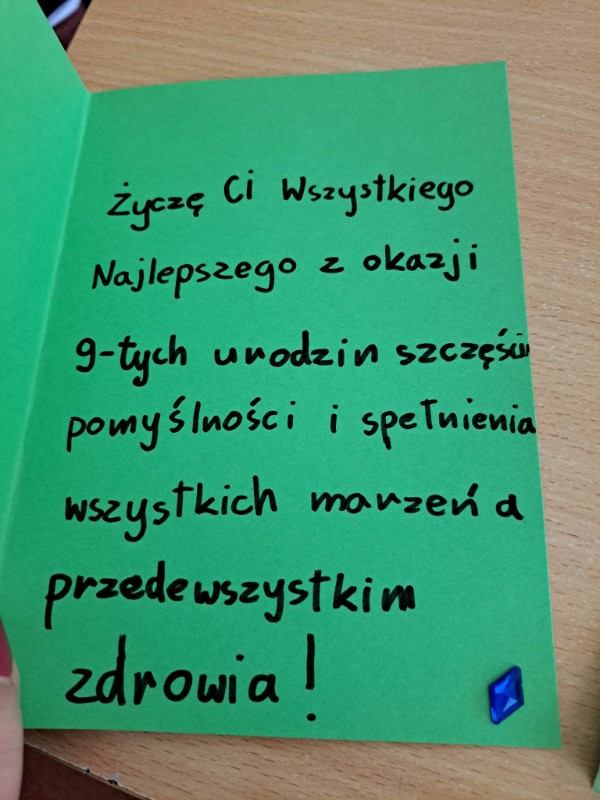 Życzę Ci Wszystkiego
Najlepszego z okazji
9-tych urodzin szczęścia
pomyślności i spełnienia
wszystkich marzeń a
przedewszystkim
zdrowia!